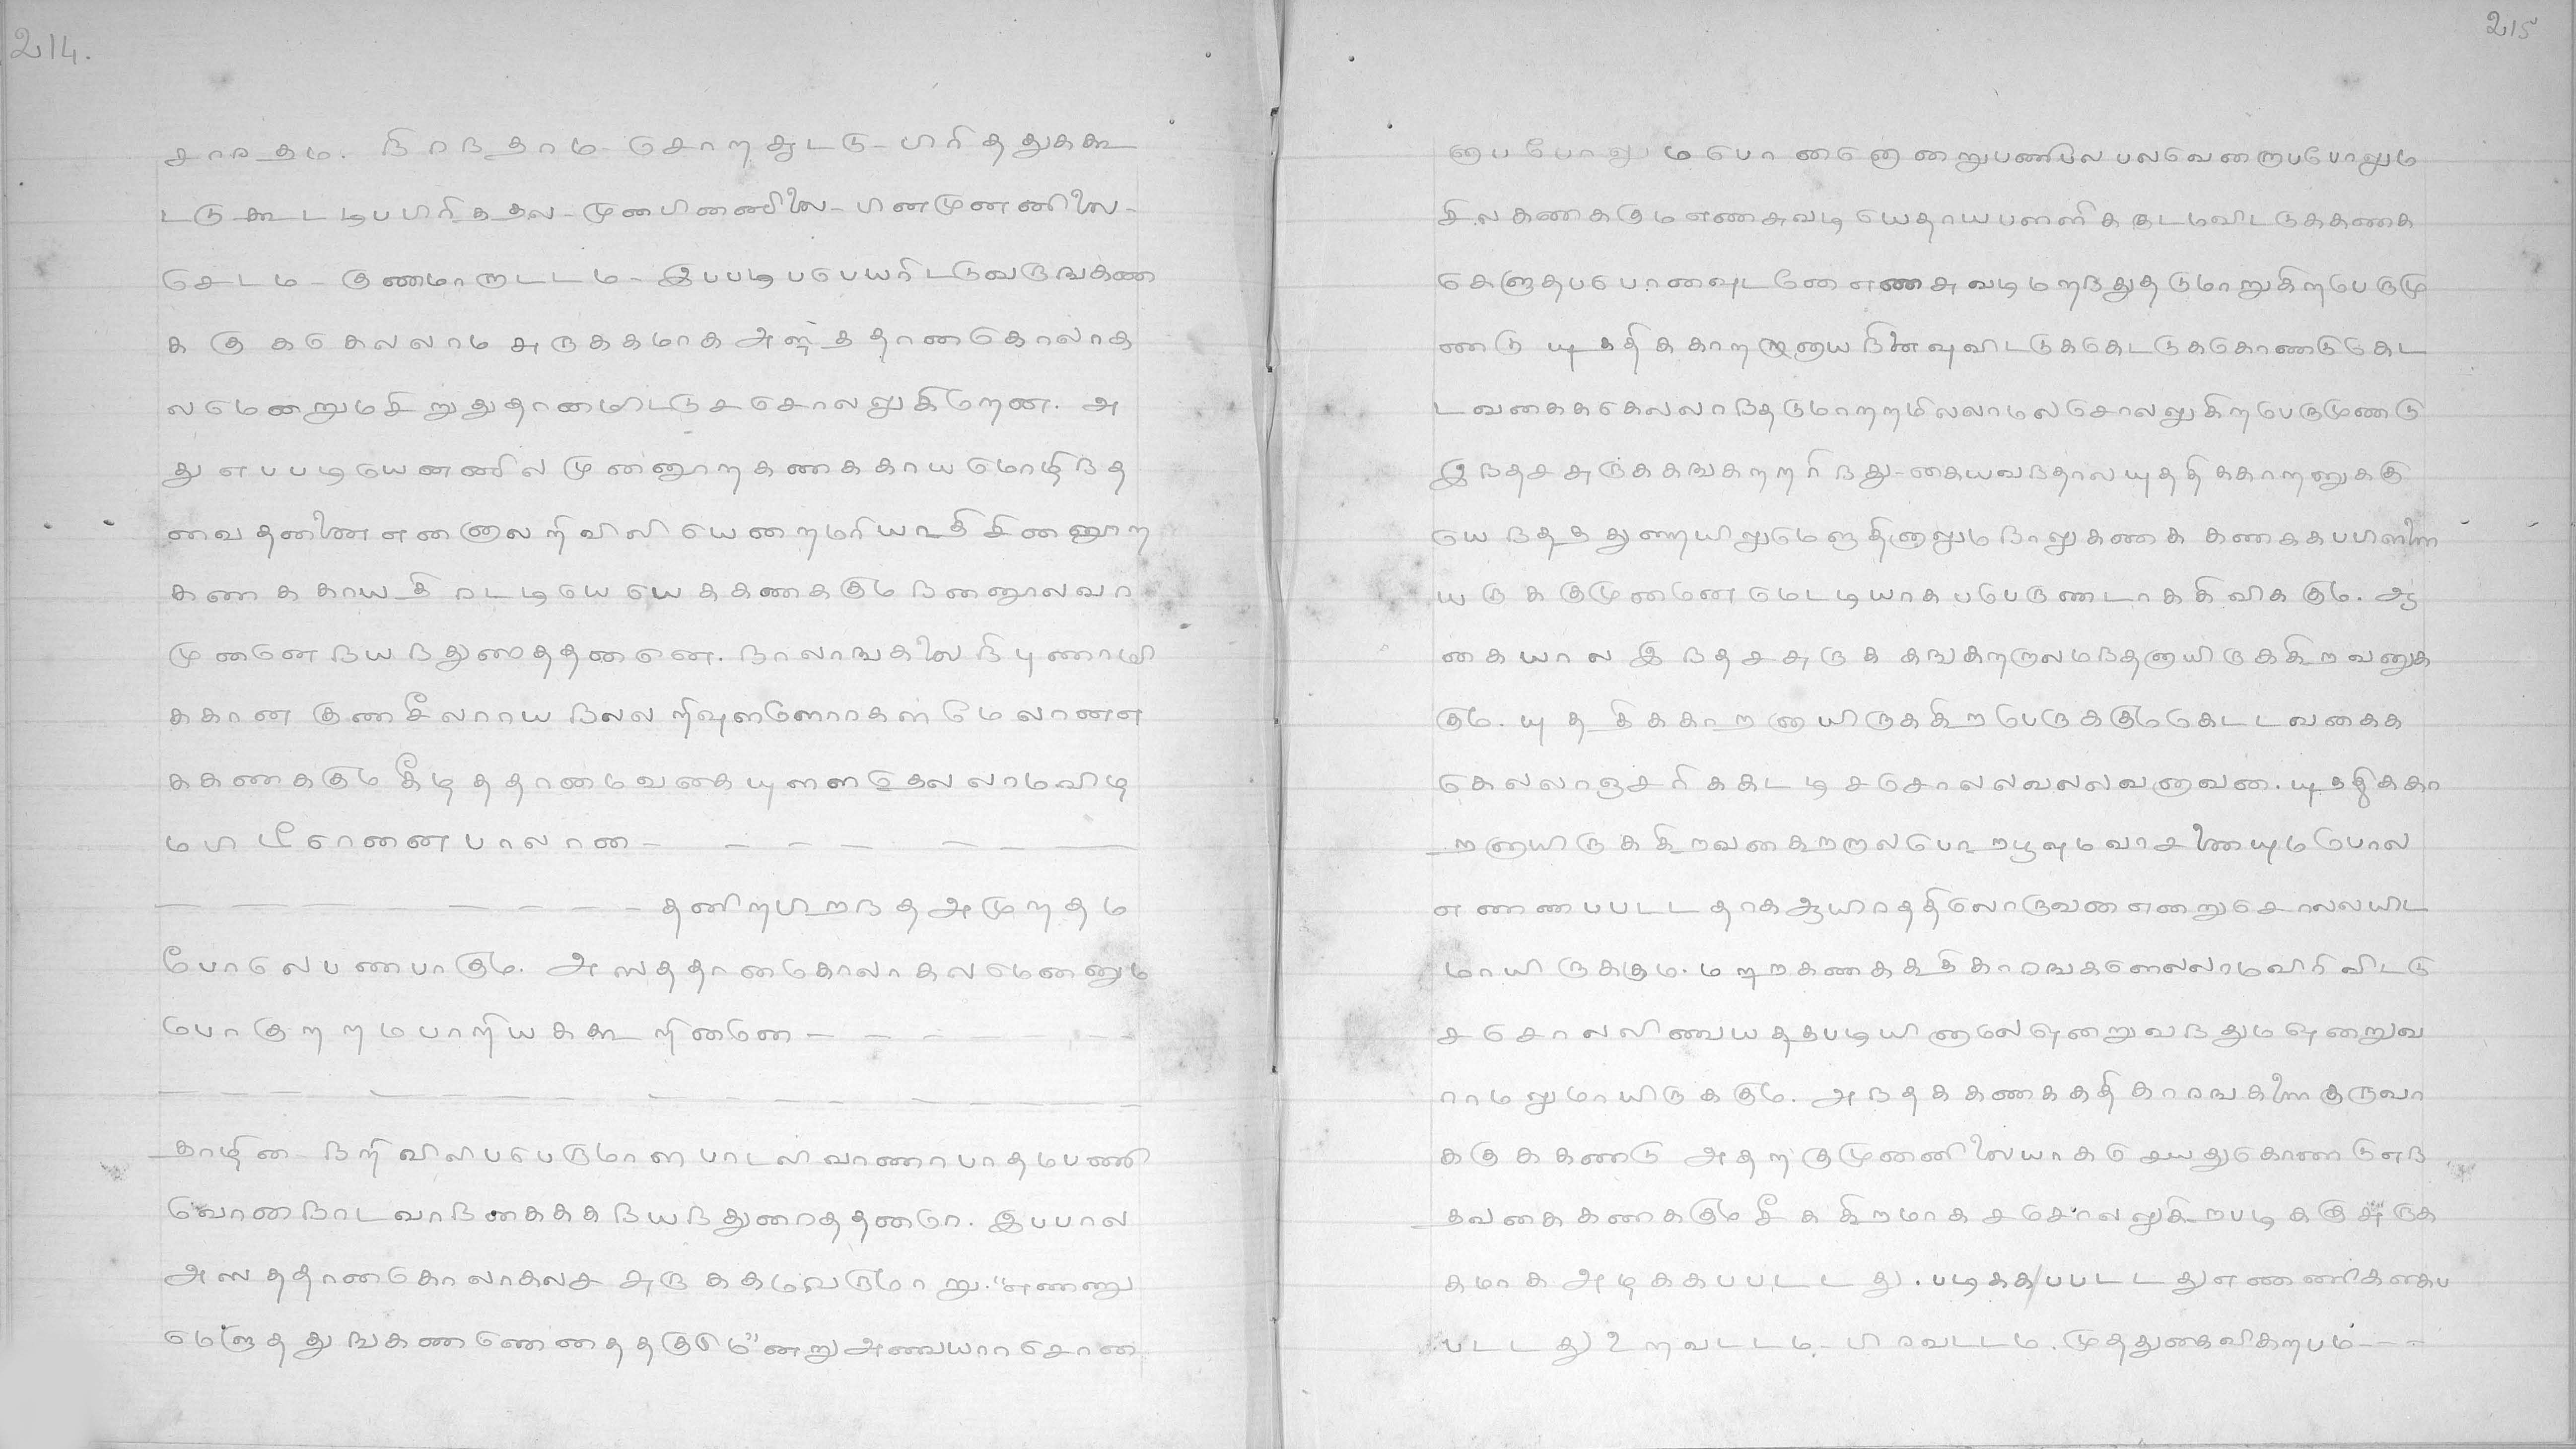 214.
சாரதம. நிரநதரம- சொறசுடடு- பிரிதததுககூ
டடுகூடடிபபிரிததல- முனபினனிலை- பினமுனனிலை-
செடம- குணமாருடடம- இபபடிபபெயரிடடுவருஙகண
ககுககெலலாம சுருககமாக அஸததானகொலாக
லமெனறுமசிறுதுதானமிடடுசசொலலுகிறேன. அ
து எபபடியெனனில முனனூறகணககாயமொழிநத
வை தனனை எனனுலறிவிலி யெனறமரியாதி சினனூற
கணககாயதிரடடியெ யெககணககும நனனூலவா
முனனெ நயநதுரைததனனெ. நாலாஙகலை நிபுணராமி
ககான குணசீலராய நலலறிவுளளொரகள மேலானஎ
ககணககும கீழததானமவகையுளளதெலலாமவிழி
மபிடீரெனனைபாலான-
தனிறபிறநதஅமுறதம
போலெபணபாகும. அஸததானமகொலாகலமெனனும
பொகுறறமபாறியககூறினனெ-
காழின- நறிவிலிபபெருமாள பாடலிவாணரபாதமபணி
வொனநாடவரநகைகக நயநதுரைததனரொ. இபபால
அஸததானகொலாகலசசுருககமவருமாறு. "எணணு
மெழுததுஙகணணெனததகும" னறு அவவையார சொன
215
னபபோலும பொனனெனறுபணிபல பலவெறைபபோலும
சிலகணககும எணசுவடி யெதாயபளளிககூடமவிடடுககணக
கெழுதபபொனவுடனே எணசுவடி மறநதுதடுமாறுகிறபெருமு
ணடு யுகதிககாறறனாய நினைவுவிடடுககெடடுககொணடுகெட
டவகைககெலலாநதடுமாறறமிலலாமலசொலலுகிறபெருமுணடு
இநதசசுருககஙகறறரிநது-கையவநதாலயுததிககாறனுககு
யெநதததுணியிலுமெழுதினாலும நாலுகணக கணககபபிளளை
யருககுமுனமெனமெடடியாகபபெருணடாககிவிககும. ஆ
கையால இநதசசுருககஙகறறாலமநதனாயிருககிறவனுக
கும. யுததிககாறனாயிருககிறபெருககுமகெடடவகைக
கெலலாஞசரிககடடிசசொலலவலலவனாவன. யுததிககா
றனாயிருககிறவனகறறாலபொறபூவும வாசனையுமபோல
எணணபபடடதாகஆயிரததிலொருவனஎனறுசொலலயிட
மாயிருககும. மறறகணககதிகாரஙகளெலலாமவிரிவிடடு
சசொலலிவையததபடியினாலெஒனறுவநதும ஒனறுவ
ராமலுமாயிருககும. அநதககணககதிகாரஙகளை குருவா
ககுககணடு அதறகுமுனனிலையாகசெயதுகொணடுஎந
தவகைகணககும சீககிறமாகசசொலலுகிறபடிககுசுருக
கமாக அழககபபடடது. படிககபபடடதுஎணணிககளகப
படடது உறவடடம- பிரவடடம. முததுகைவிகறபம---